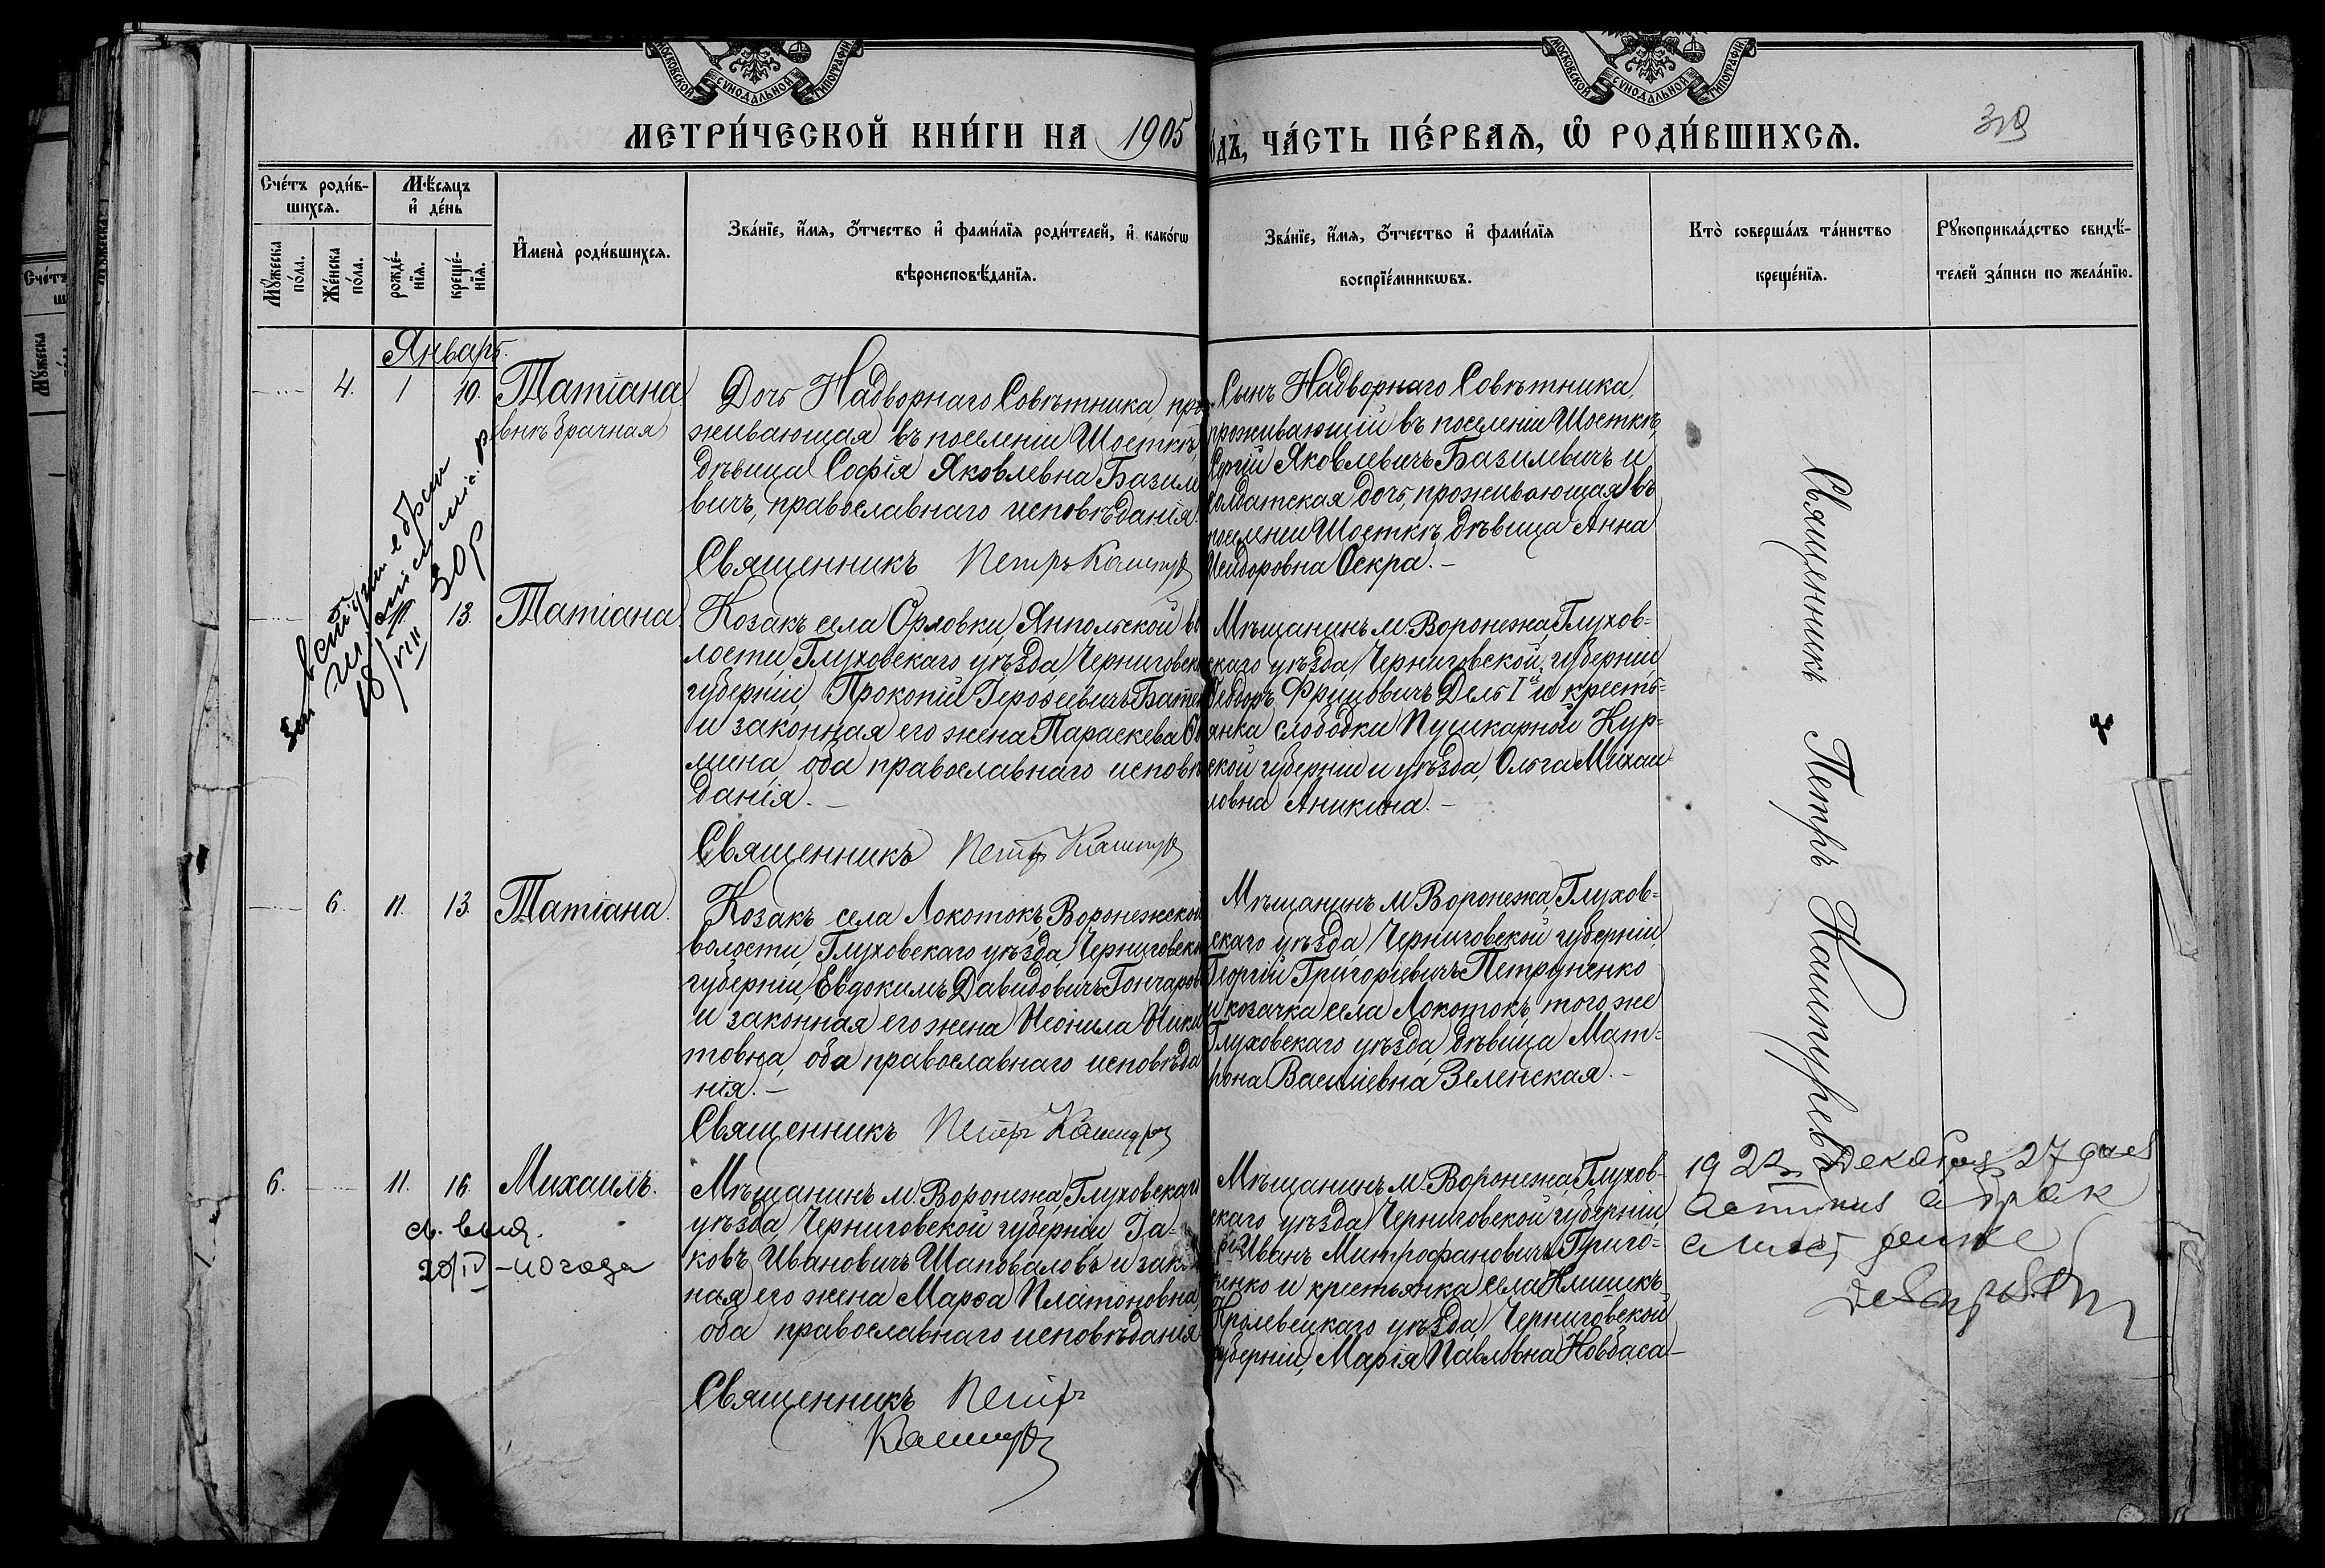 МОСКОВСКОЙ СѴНОДАЛЬНОЙ ТИПОГРАФІИ
МОСКОВСКОЙ СѴНОДАЛЬНОЙ ТИПОГРАФІИ
МЕТРИ́ЧЕСКОЙ КНИ́ГИ НА 1905
о́дъ, ЧА́СТЬ ПЕ́РВАѦ, Ѡ҆ РОДИ́ВШИХСѦ.
Сче́тъ роди́в-
шихсѧ.
Мꙋ́жеска
по́ла.
Же́нска
по́ла.
Мѣ́сѧцъ
и҆ де́нь
рожде́-
нїѧ.
креще́-
нїѧ.
И҆мена̀ роди́вшихсѧ.
Зва́нїе, и҆́мѧ, о҆́тчество и҆ фами́лїѧ роди́телей, и҆ како́гѡ
вѣроисповѣ́данїѧ.
Зва́нїе, и҆́мѧ, о҆́тчество и҆ фами́лїѧ
воспрїе́мникѡвъ.
Кто̀ соверша́лъ та́инство
креще́нїѧ.
Рꙋкоприкла́дство свидѣ́-
телей за́писи по жела́нїю.
Январь.
4. 1 10. Татіана
(внѣбрачная)
Дочь Надворнаго Совѣтника, про
живающая въ поселеніи Шосткѣ
дѣвица Софія Яковлевна Базиле
вичъ, православнаго исповѣданія.
Священникъ Петръ Кашпур
Сынъ Надворнаго Совѣтника,
проживающій въ поселеніи Шосткѣ,
Сергій Яковлевичъ Базилевичъ и
солдатская дочь, проживающая въ
поселеніи Шосткѣ, дѣвица Анна
Исидоровна Оскра.-
18/VIII 30 р
13. Татіана
Козакъ села Орловки, Янпольской во
лости, Глуховскаго уѣзда, Черниговск
губерніи, Прокопій
и законная его жена Параскева
мина, оба православнаго исповѣ
данія.-
Священникъ Петръ Кашпур
Мѣщанинъ м. Воронежа, Глухов=
скаго уѣзда, Черниговской губерніи
Ѳеодоръ Фрицовичъ Дель Iй и кресть=
янка слободки Пушкарной Кур=
ской губерніи и уѣзда, Ольга Михаи
ловна Аникина.-
6. 11. 13. Татіана.
Козакъ села Локотокъ, Воронежской
волости, Глуховскаго уѣзда, Черниговск
губерніи, Евдокимъ Давидовичъ Гончаров
и законная его жена Неонила Ники
товна, оба православнаго исповѣда
нія.-
Священникъ Петръ Кашпур
Мѣщанинъ м. Воронежа, Глухов=
скаго уѣзда, Черниговской губерніи
Георгій Григоріевичъ Петруненко
и козачка села Локотокъ, того же
Глуховскаго уѣзда, дѣвица Мат=
рона Василіевна Зеленская.-
6. 11. 16. Михаилъ.
20/IV -10 года
Мѣщанинъ м. Воронежа, Глуховскаго
уѣзда, Черниговской губерніи Іа-
ковъ Ивановичъ Шаповаловъ и закон
ная его жена Марѳа Платоновна,
оба православнаго исповѣданія
Священникъ Петръ
Кашпур
Мѣщанинъ м. Воронежа, Глухов-
скаго уѣзда, Черниговской губерніи,
Иванъ Митрофановичъ Григо=
ренко и крестьянка села Клишекъ,
Кролевецкаго уѣзда, Черниговской
губерніи, Марія Павловна Ковбаса-
Священникъ Петръ Кашпуревъ
декабря 27 дня
брак